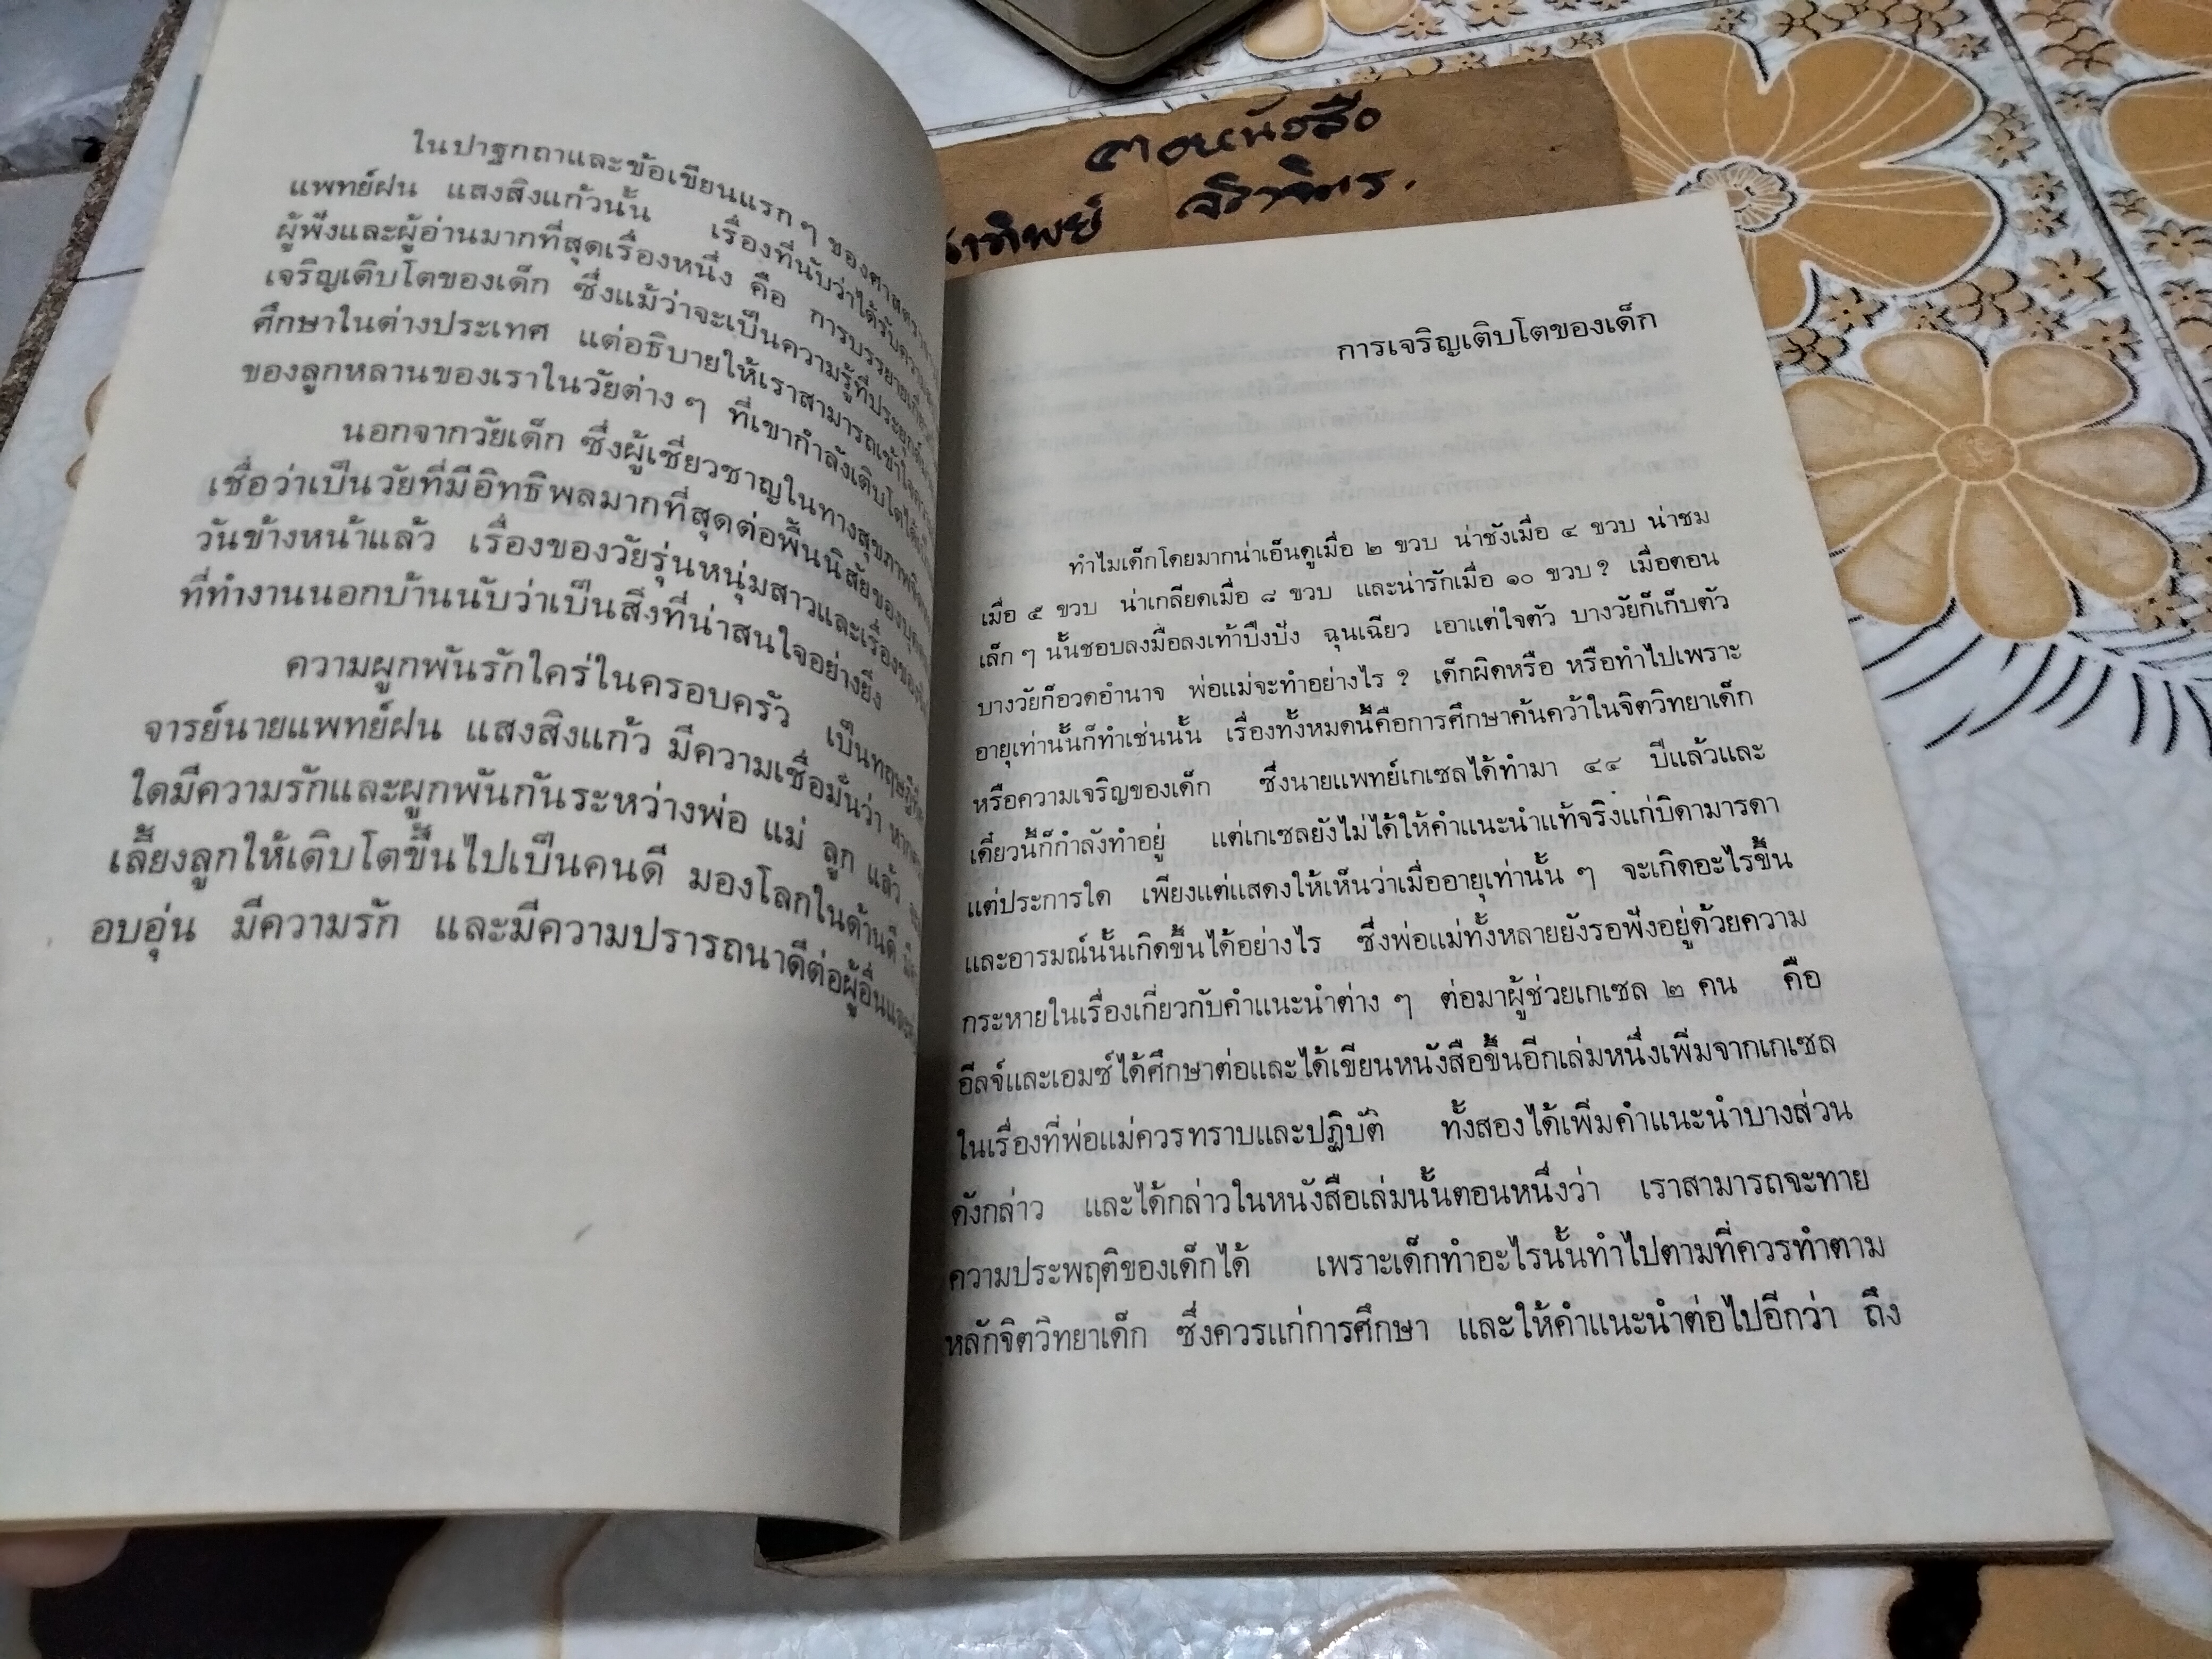 ในปาฐกถาและข้อเขียนแรก ๆ ของศาสตรา
แพทย์ฝน แสงสิงแก้วนั้น เรื่องที่นับว่าได้รับความ
ผู้ฟังและผู้อ่านมากที่สุดเรื่องหนึ่ง คือ การบรรยายเกี่ยวกับ
เจริญเติบโตของเด็ก ซึ่งแม้ว่าจะเป็นความรู้ที่ประยุกต์
ศึกษาในต่างประเทศ แต่อธิบายให้เราสามารถเข้าใจ
ของลูกหลานของเราในวัยต่าง ๆ ที่เขากำลังเติบโตได้
นอกจากวัยเด็ก ซึ่งผู้เชี่ยวชาญในทางสุขภาพจิต
เชื่อว่าเป็นวัยที่มีอิทธิพลมากที่สุดต่อพื้นนิสัยของบุคคล
วันข้างหน้าแล้ว เรื่องของวัยรุ่นหนุ่มสาวและเรื่องของ
ที่ทำงานนอกบ้านนับว่าเป็นสิ่งที่น่าสนใจอย่างยิ่ง
ความผูกพันรักใคร่ในครอบครัว เป็นทฤษฎีที่
จารย์นายแพทย์ฝน แสงสิงแก้ว มีความเชื่อมั่นว่า หาก
ใดมีความรักและผูกพันกันระหว่างพ่อ แม่ ลูก แล้ว
เลี้ยงลูกให้เติบโตขึ้นไปเป็นคนดี มองโลกในด้านดี
อบอุ่น มีความรัก และมีความปรารถนาดีต่อผู้อื่น
ตอหนังสือ
การเจริญเติบโตของเด็ก
ทำไมเด็กโดยมากน่าเอ็นดูเมื่อ ๒ ขวบ น่าชังเมื่อ ๔ ขวบ น่าชม
เมื่อ ๕ ขวบ น่าเกลียดเมื่อ ๘ ขวบ และน่ารักเมื่อ ๑๐ ขวบ ? เมื่อตอน
เล็ก ๆ นั้นชอบลงมือลงเท้าปึงปัง ฉุนเฉียว เอาแต่ใจตัว บางวัยก็เก็บตัว
บางวัยก็อวดอำนาจ พ่อแม่จะทำอย่างไร ? เด็กผิดหรือ หรือทำไปเพราะ
อายุเท่านั้นก็ทำเช่นนั้น เรื่องทั้งหมดนี้คือการศึกษาค้นคว้าในจิตวิทยาเด็ก
หรือความเจริญของเด็ก ซึ่งนายแพทย์เกเซลได้ทำมา ๔๔ ปีแล้วและ
เดี๋ยวนี้ก็กำลังทำอยู่ แต่เกเซลยังไม่ได้ให้คำแนะนำแท้จริงแก่บิดามารดา
แต่ประการใด เพียงแต่แสดงให้เห็นว่าเมื่ออายุเท่านั้น ๆ จะเกิดอะไรขึ้น
และอารมณ์นั้นเกิดขึ้นได้อย่างไร ซึ่งพ่อแม่ทั้งหลายยังรอฟังอยู่ด้วยความ
กระหายในเรื่องเกี่ยวกับคำแนะนำต่าง ๆ ต่อมาผู้ช่วยเกเซล ๒ คน คือ
อีลจ์และเอมซ์ได้ศึกษาต่อและได้เขียนหนังสือขึ้นอีกเล่มหนึ่งเพิ่มจากเกเซล
ในเรื่องที่พ่อแม่ควรทราบและปฏิบัติ ทั้งสองได้เพิ่มคำแนะนำบางส่วน
ดังกล่าว และได้กล่าวในหนังสือเล่มนั้นตอนหนึ่งว่า เราสามารถจะทาย
ความประพฤติของเด็กได้ เพราะเด็กทำอะไรนั้นทำไปตามที่ควรทำตาม
หลักจิตวิทยาเด็ก ซึ่งควรแก่การศึกษา และให้คำแนะนำต่อไปอีกว่า ถึง